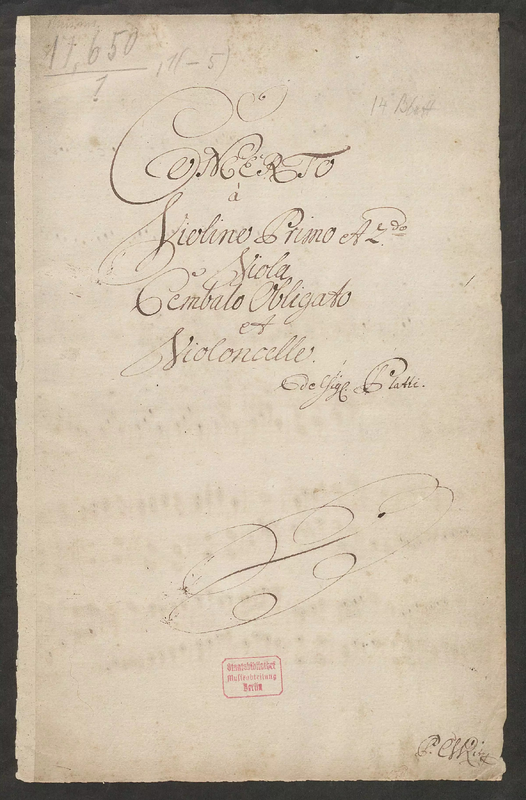 17,650
1
, 1(–5)
14 Blatt
CONCERTO
à
Violino Primo et 2.do
Viola
Cembalo Obligato
et
Violoncello.
del Sigl. Platti.
Staatsbibliothek
Musikabteilung
Berlin